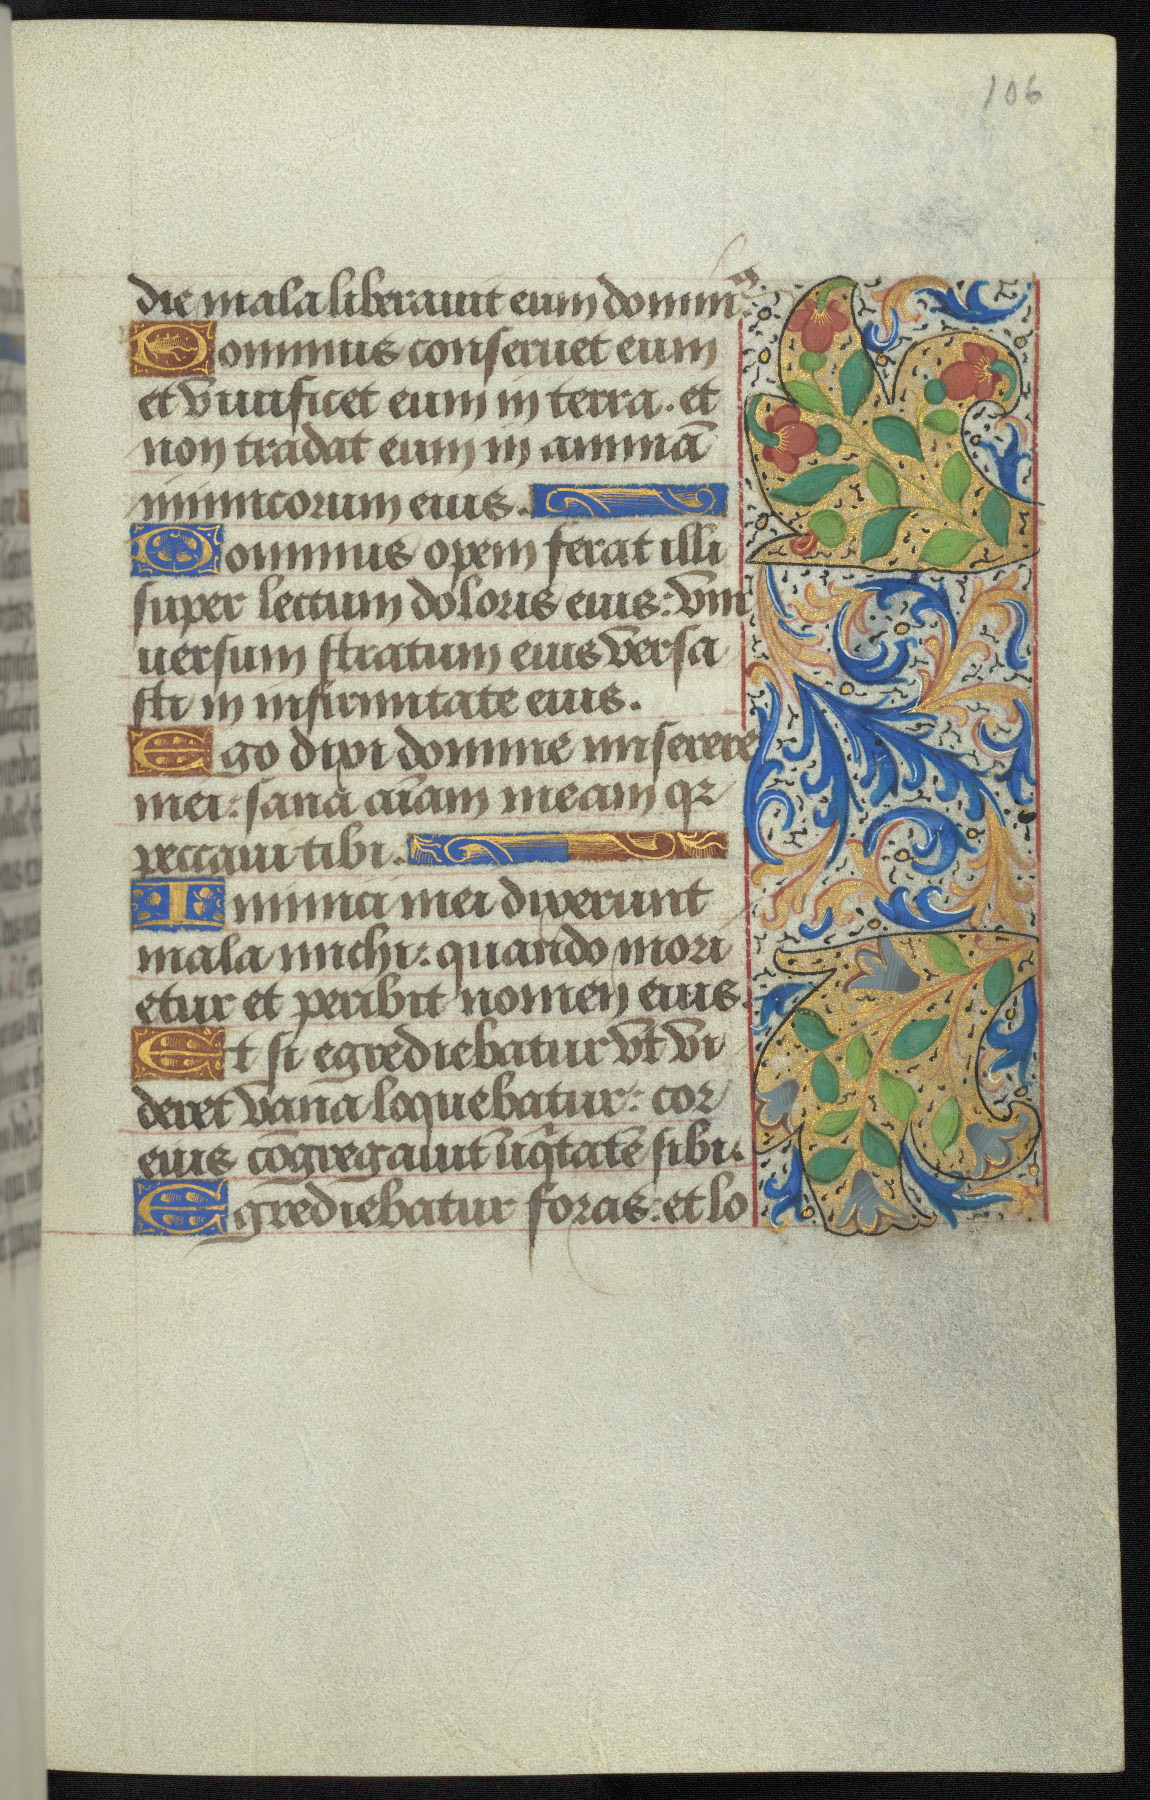 106
die mala liberauit eum domin⁹
Dominus conseruet eum
et viuificet eum in terra. et
non tradat eum in animā
inimicorum eius.
Dominus opem ferat illi
super lectum doloris eius: vni
uersum stratum eius versa
sti in infirmitate eius.
Ego dixi domine miserere
mei: sana aīam meam qꝛ
peccaui tibi.
Inimici mei dixerunt
mala michi: quando mori
etur et peribit nomen eius.
Et si egrediebatur vt vi
deret vana loquebatur: cor
eius cōgregauit īiq̇tatē sibi.
Egrediebatur foras: et lo